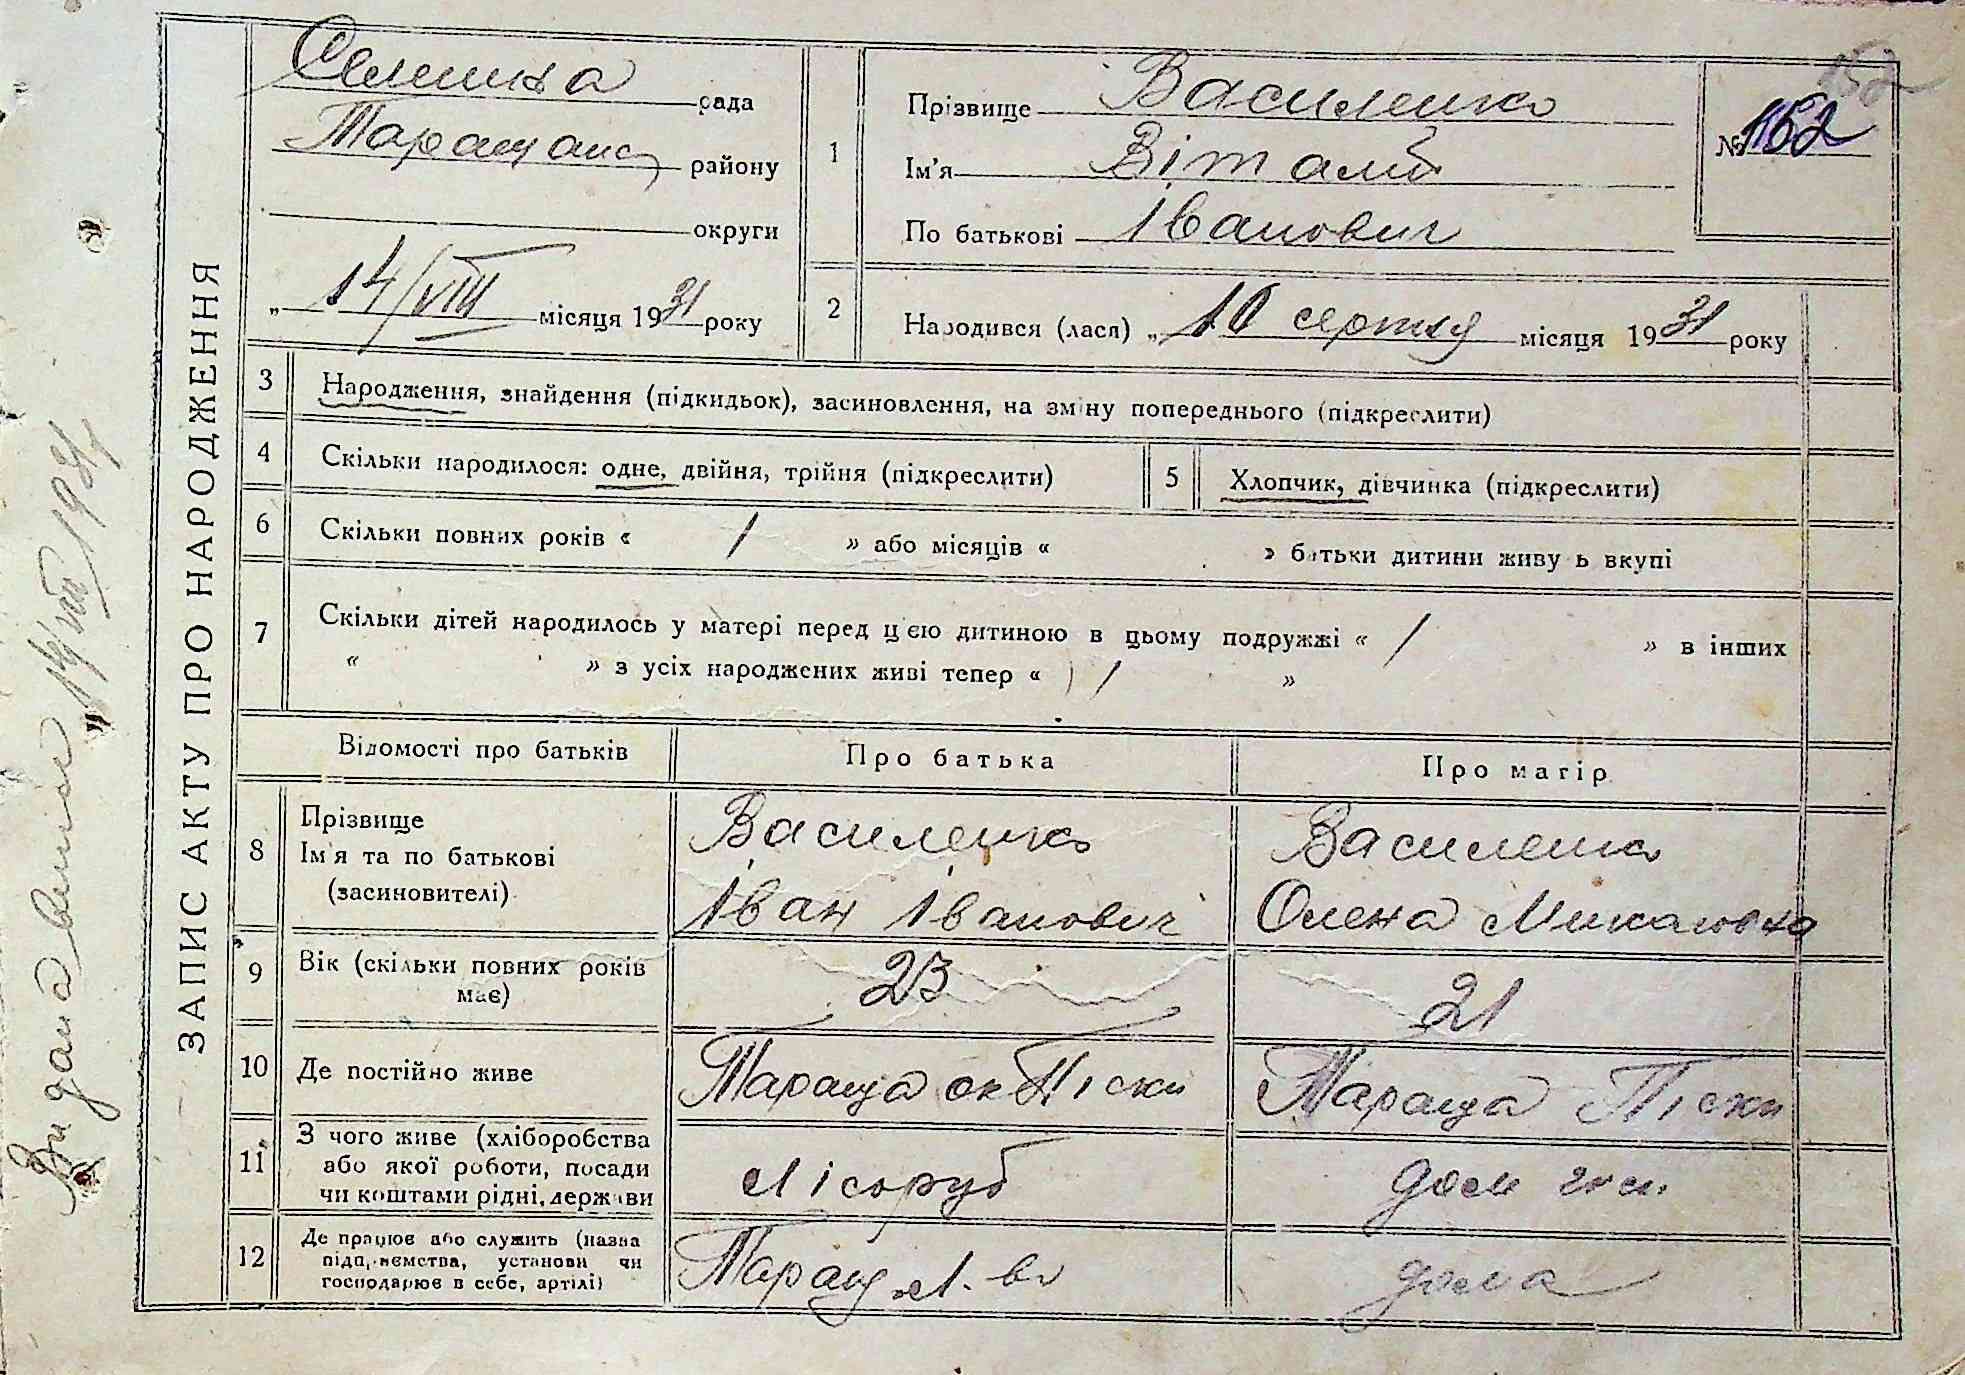 ЗАПИС АКТУ ПРО НАРОДЖЕННЯ
Видана виписка „14/VIII 1931 р
Селищна рада
Таращанс району
округи
„ 14/VIII місяця 1931 року
1
Прізвище Василенко
Ім'я Віталій
По батькові Іванович
152
№ 152
2
Народився (лася) „ 10 серпня місяця 1931 року
3 Народження, знайдення (підкидьок), засиновлення, на зміну попереднього (підкреслити)
4 Скільки народилося: одне, двійня, трійня (підкреслити)
5 Хлопчик, дівчинка (підкреслити)
6 Скільки повних років « 1 » або місяців « » батьки дитини живуть вкупі
7 Скільки дітей народилось у матері перед цією дитиною в цьому подружжі « 1 » в інших
« » з усіх народжених живі тепер « 1 »
Відомості про батьків Про батька Про матір
8 Прізвище
Ім'я та по батькові
(засиновителі)
Василенко
Іван Іванович
Василенко
Олена Миколаївна
9 Вік (скільки повних років
має)
23
21
10 Де постійно живе
Тараща ок Піски
Тараща Піски
11 З чого живе (хліборобства
або якої роботи, посади
чи коштами рідні, держави
Лісоруб
дом госп.
12 Де працює або служить (назва
підприємства, установи чи
господарює в себе, артілі)
Таращ Л.
дома